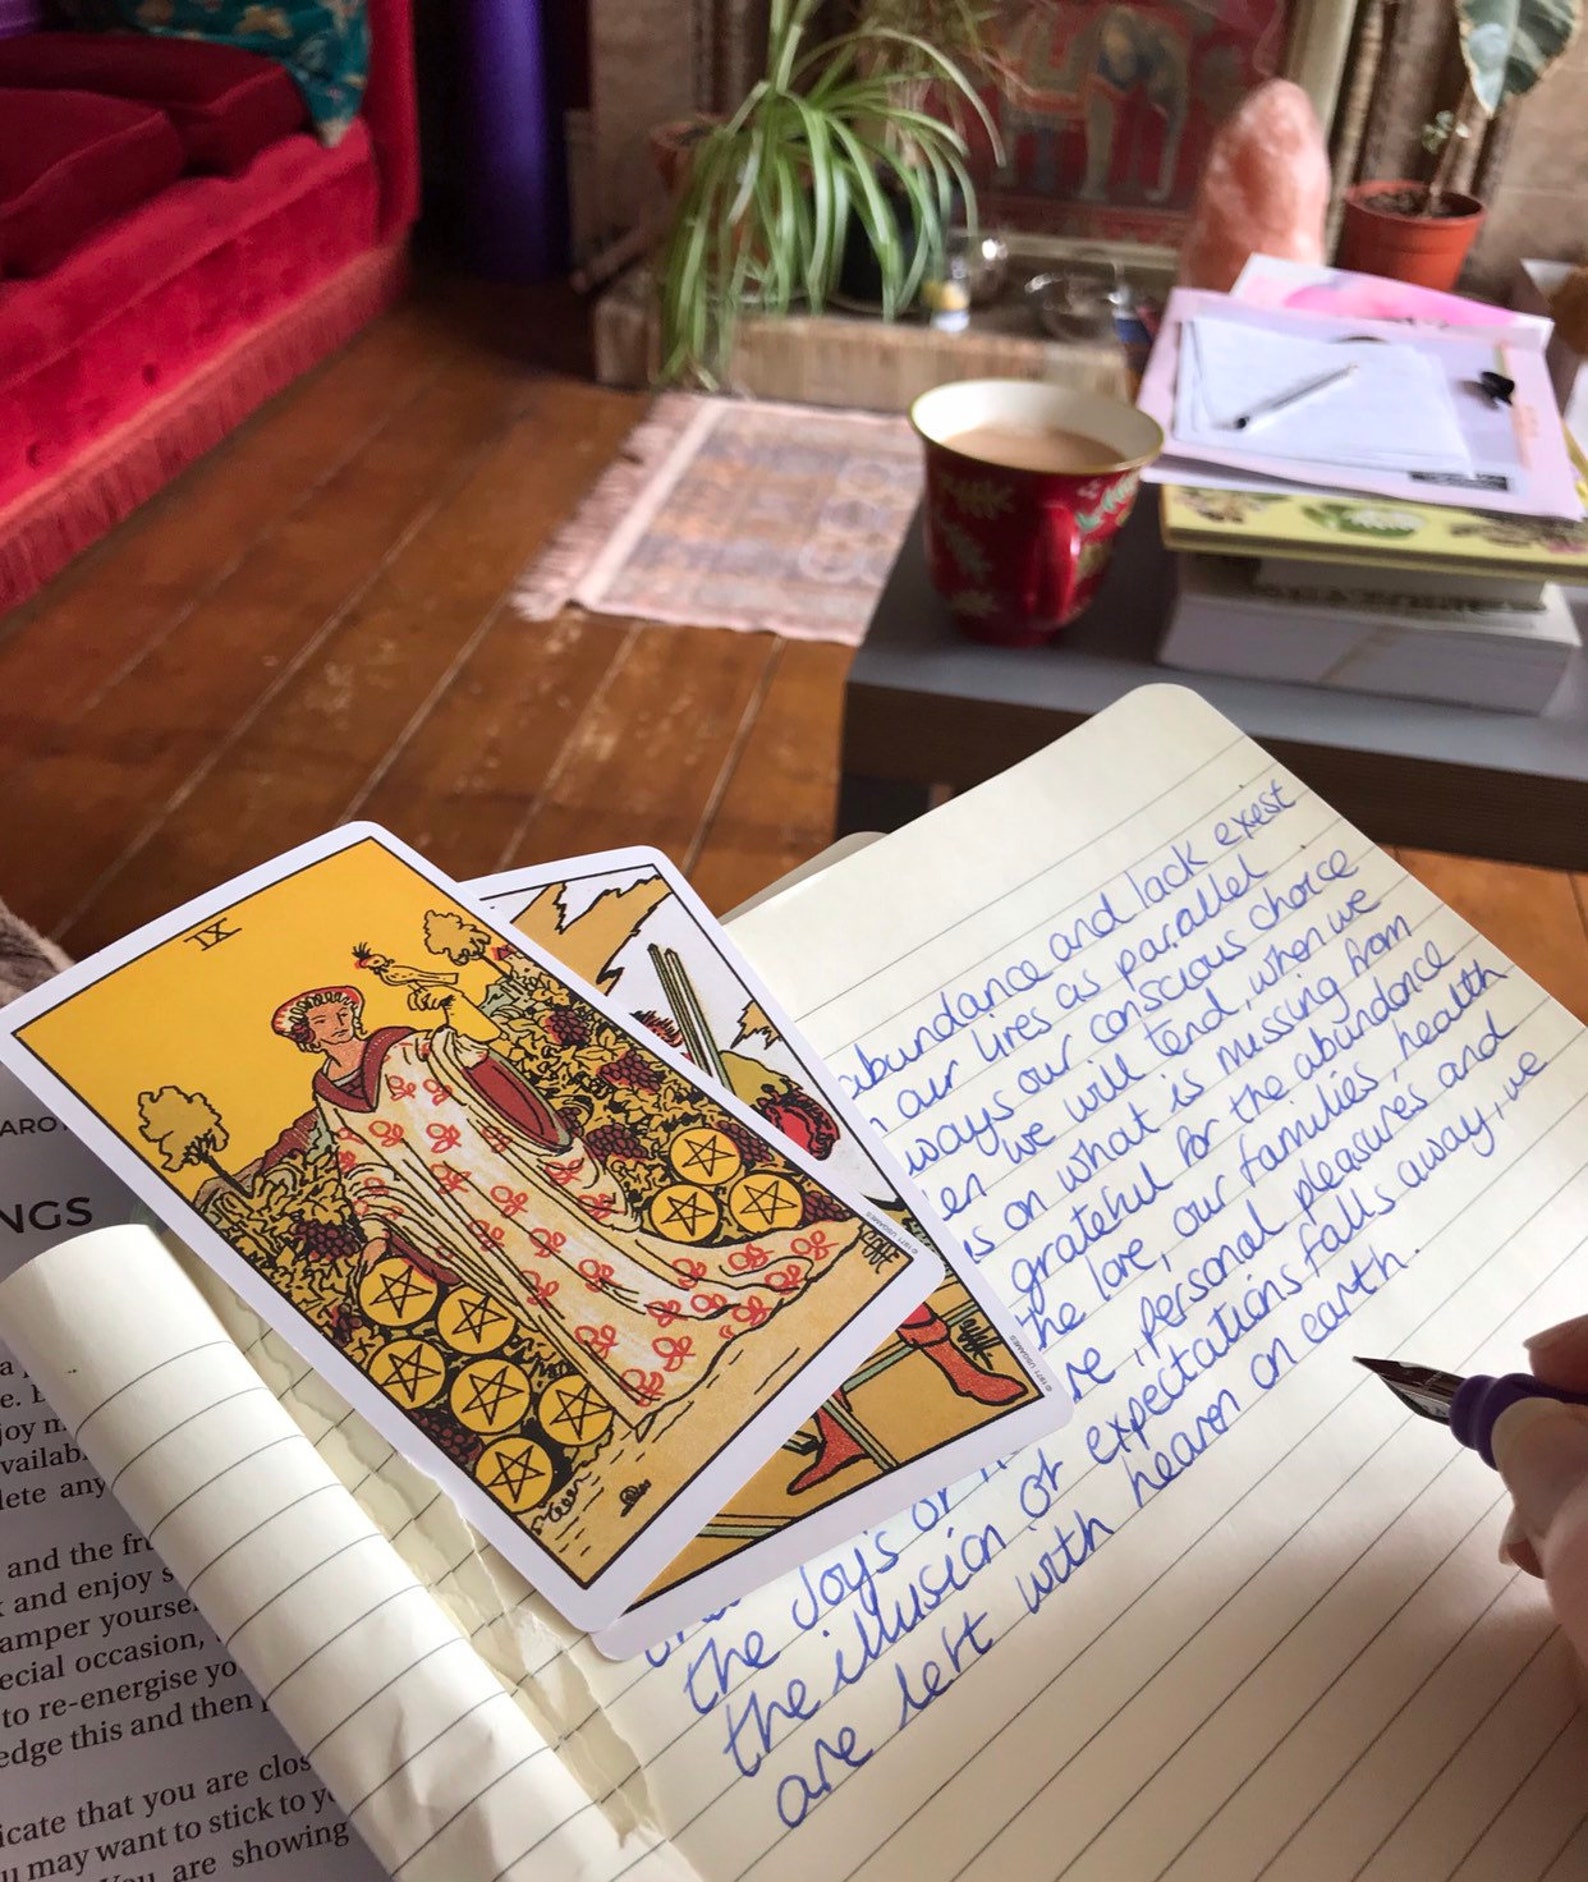 IX
© 1971 USGAMES
© 1971 USGAMES
abundance and lack exist
our lives as parallel
our conscious choice
we will tend, when we
on what is missing from
grateful for the abundance
the love, our families, health
personal pleasures and
the Joys of
the illusion of expectations falls away, we
are left with heaven on earth.
NGS
joy
any
and the
and enjoy
ecial occasion,
to re-energise yo
edge this and then
icate that you are clos
may want to stick to
are showing